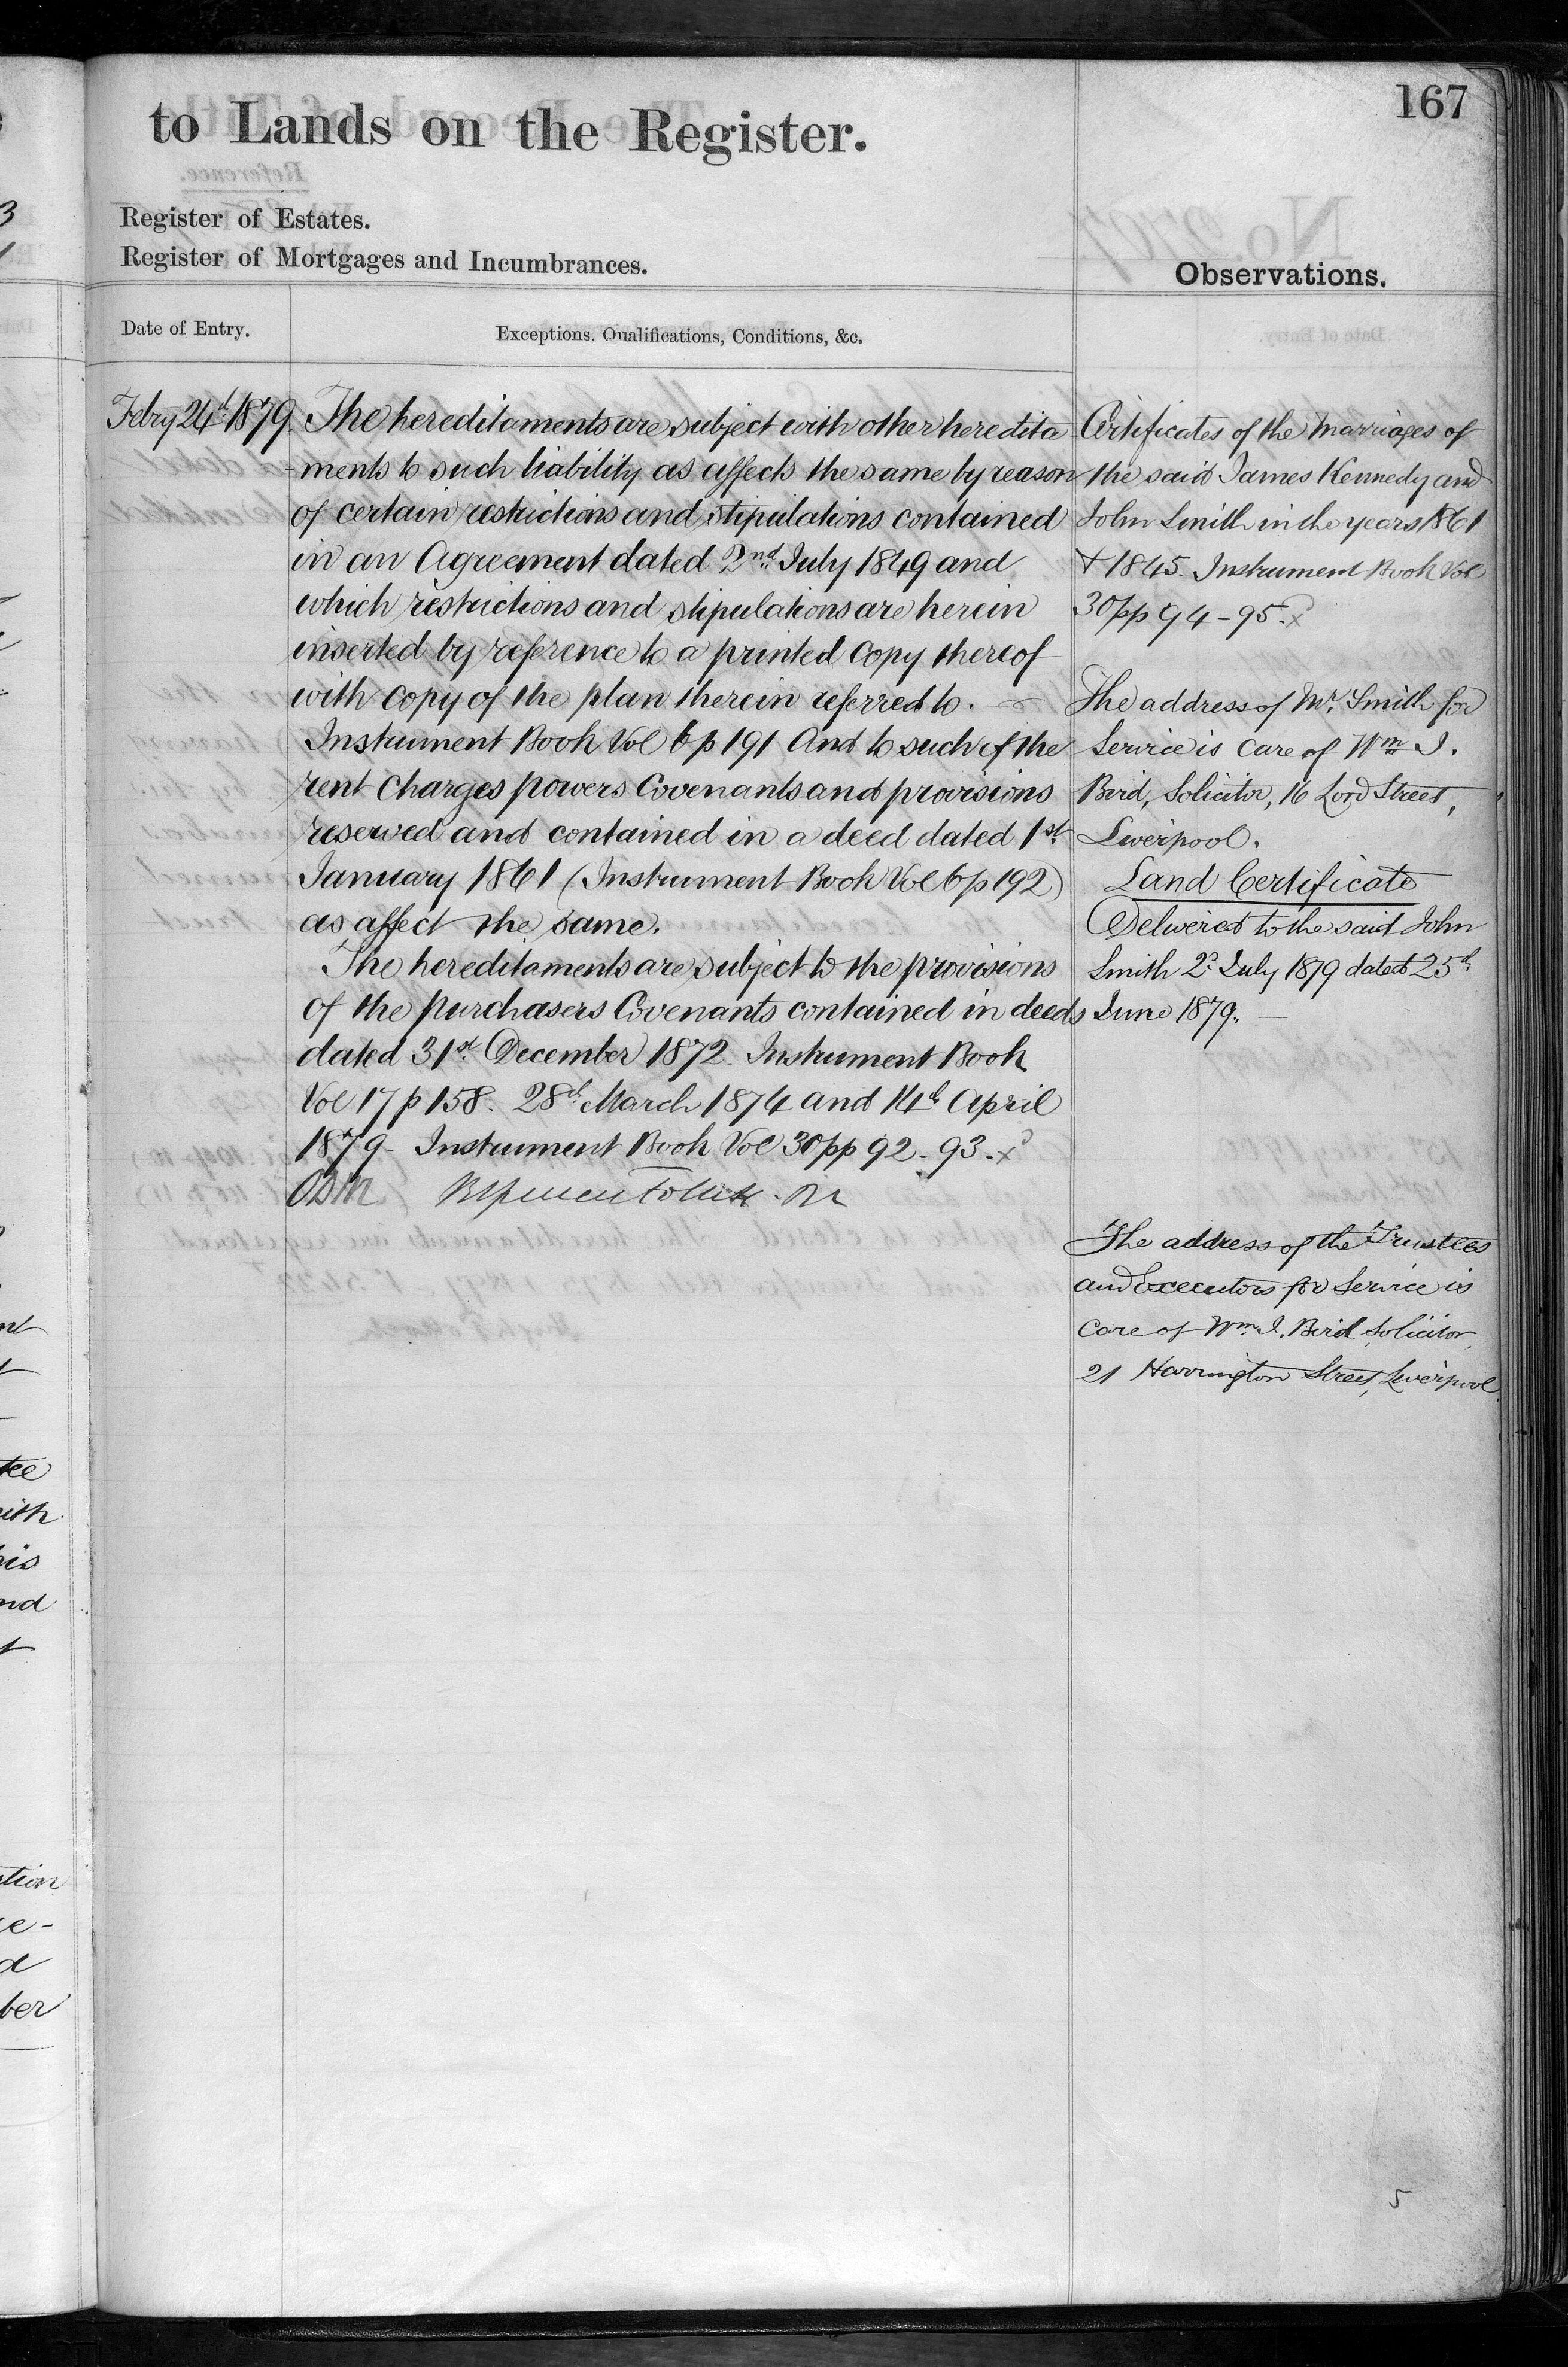 167
to Lands on the Register.
Register of Estates.
Register of Mortgages and Incumbrances.
Observations.
Date of Entry.
Exceptions, Qualifications, Conditions, &c.
Febry 24th 1879.
The hereditaments are subject with other heredita
-ments to such liability as affects the same by reason
of certain restrictions and stipulations contained
in an Agreement dated 2nd July 1849 and
which restrictions and stipulations are herein
inserted by reference to a printed copy thereof
with copy of the plan therein referred to.
Instrument Book Vol 6 p 191 And to such of the
rent charges powers Covenants and provisions
reserved and contained in a deed dated 1st
January 1861 (Instrument Book Vol 6 p 192)
as affect the same.
The hereditaments are subject to the provisions
of the purchasers Covenants contained in deeds
dated 31st December 1872. Instrument Book
Vol 17 p 158. 28th March 1874 and 14th April
1879 - Instrument Book Vol 30 pp 92 - 93 -
Certificates of the Marriages of
the said James Kennedy and
John Smith in the years 1861
& 1845. Instrument Book Vol
30 pp 94 - 95.
The address of Mr. Smith for
Service is care of Wm I.
Bird, Solicitor, 16 Lord Street,
Liverpool.
Land Certificate
Delivered to the said John
Smith 2d July 1879 dated 25th
June 1879.
The address of the Trustees
and Executors for Service is
care of Wm I. Bird Solicitor,
21 Harrington Street, Liverpool.
5